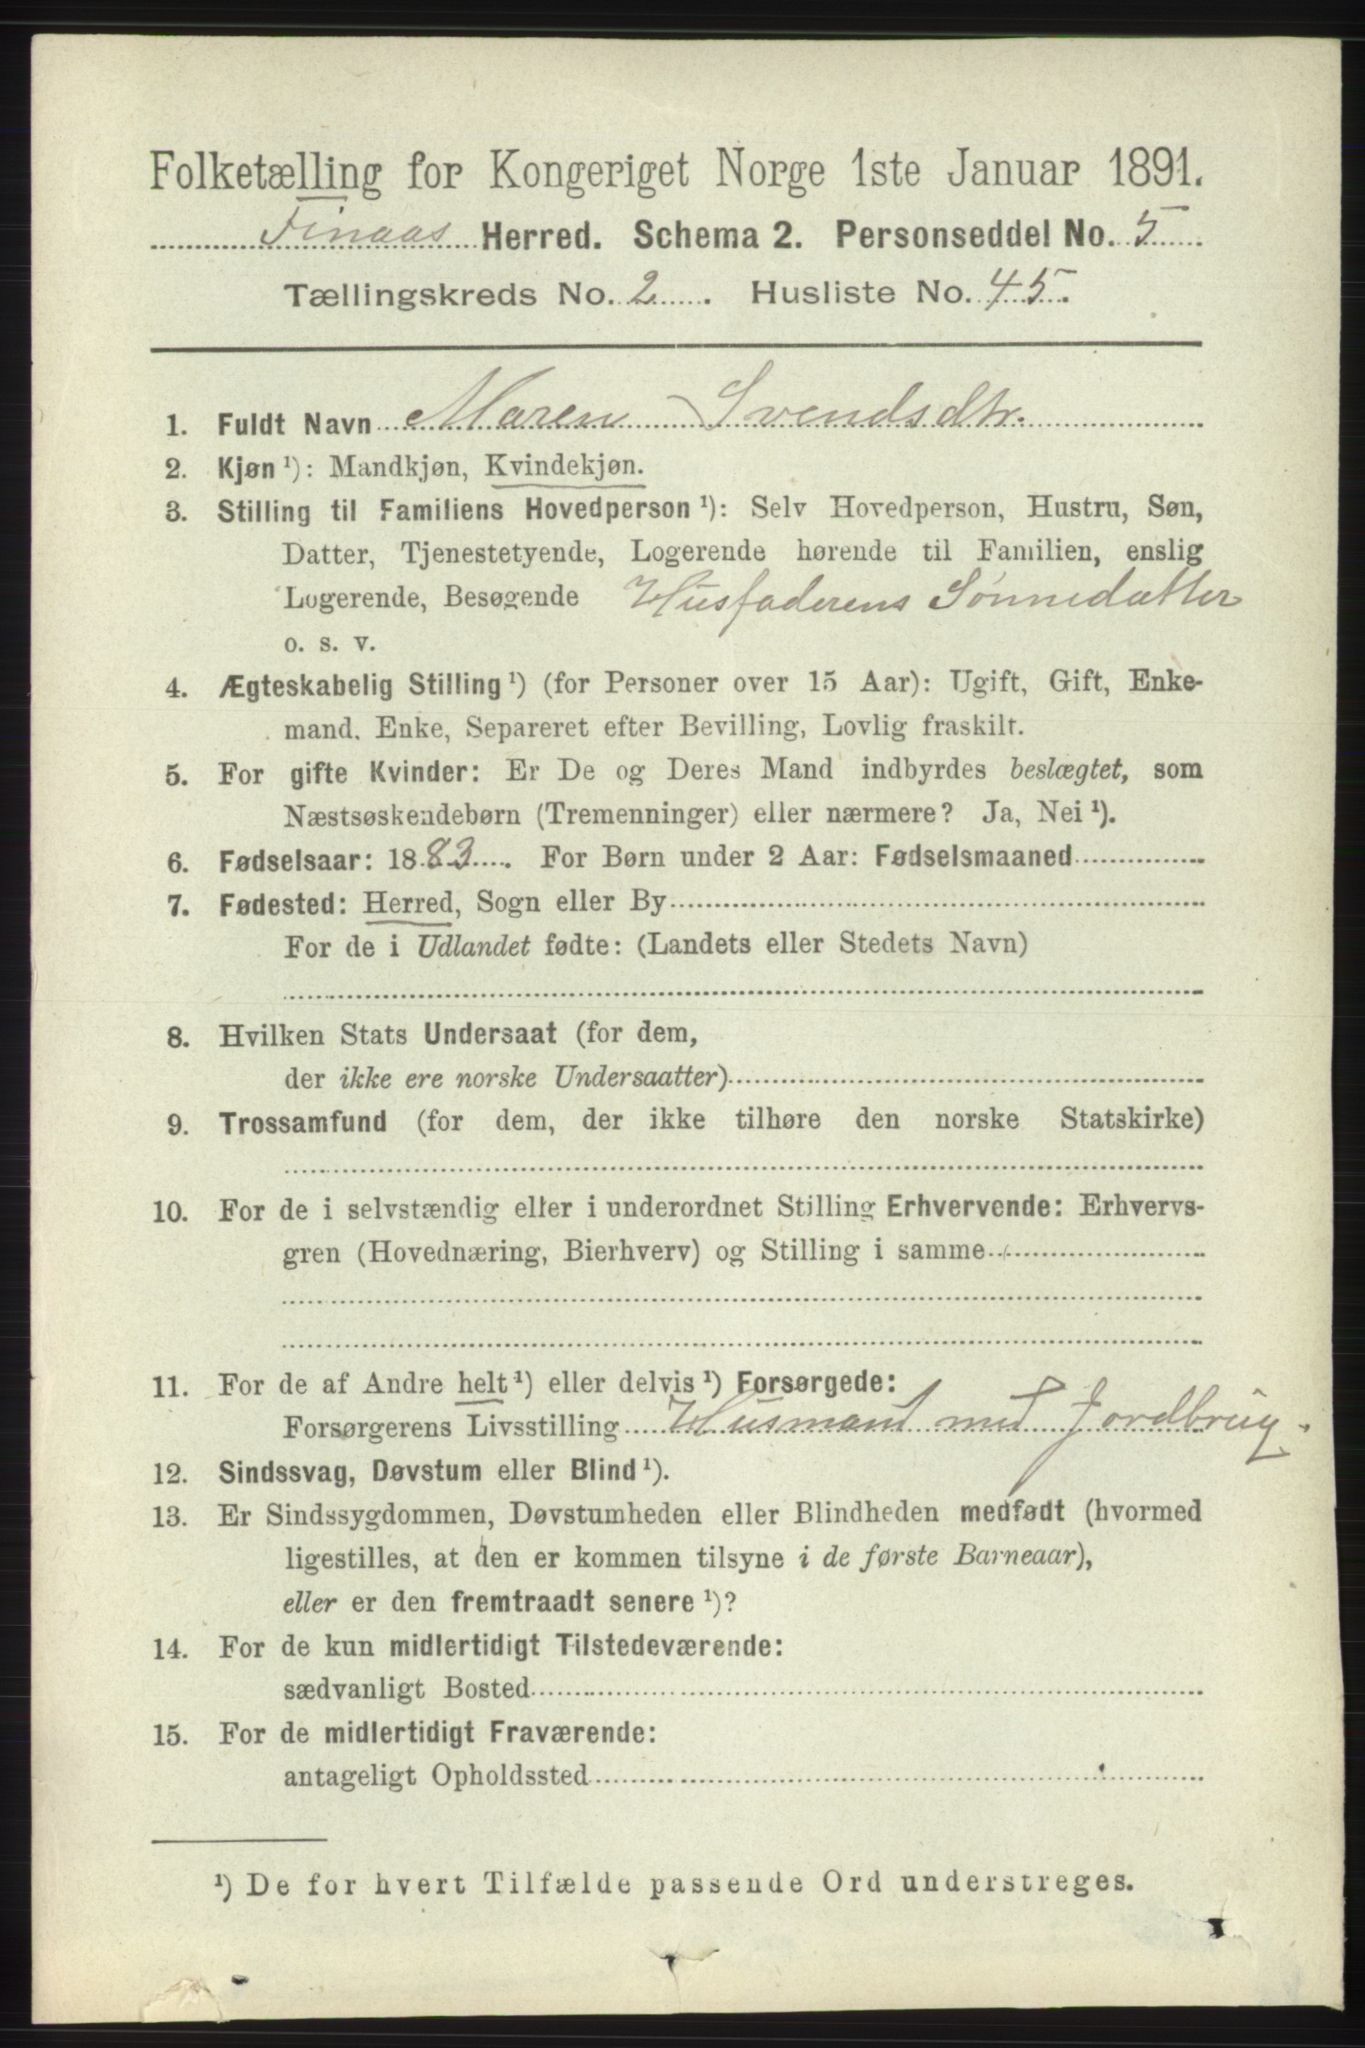 Folketælling for Kongeriget Norge 1ste Januar 1891.
Finaas Herred. Schema 2. Personseddel No. 5
Tællingskreds No. 2. Husliste No. 45.
1. Fuldt Navn Maren Svendsdtr.
2. Kjøn ¹): Mandkjøn, Kvindekjøn.
3. Stilling til Familiens Hovedperson ¹): Selv Hovedperson, Hustru, Søn,
Datter, Tjenestetyende, Logerende hørende til Familien, enslig
Logerende, Besøgende Husfaderens Sønnedatter
o. s. v.
4. Ægteskabelig Stilling ¹) (for Personer over 15 Aar): Ugift, Gift, Enke-
mand, Enke, Separeret efter Bevilling, Lovlig fraskilt.
5. For gifte Kvinder: Er De og Deres Mand indbyrdes beslægtet, som
Næstsøskendebørn (Tremenninger) eller nærmere? Ja, Nei ¹).
6. Fødselsaar: 1883. For Børn under 2 Aar: Fødselsmaaned
7. Fødested: Herred, Sogn eller By
For de i Udlandet fødte: (Landets eller Stedets Navn)
8. Hvilken Stats Undersaat (for dem,
der ikke ere norske Undersaatter)
9. Trossamfund (for dem, der ikke tilhøre den norske Statskirke)
10. For de i selvstændig eller i underordnet Stilling Erhvervende: Erhvervs-
gren (Hovednæring, Bierhverv) og Stilling i samme
11. For de af Andre helt ¹) eller delvis ¹) Forsørgede:
Forsørgerens Livsstilling Husmand med Jordbrug.
12. Sindssvag, Døvstum eller Blind ¹).
13. Er Sindssygdommen, Døvstumheden eller Blindheden medfødt (hvormed
ligestilles, at den er kommen tilsyne i de første Barneaar),
eller er den fremtraadt senere ¹)?
14. For de kun midlertidigt Tilstedeværende:
sædvanligt Bosted
15. For de midlertidigt Fraværende:
antageligt Opholdssted
¹) De for hvert Tilfælde passende Ord understreges.